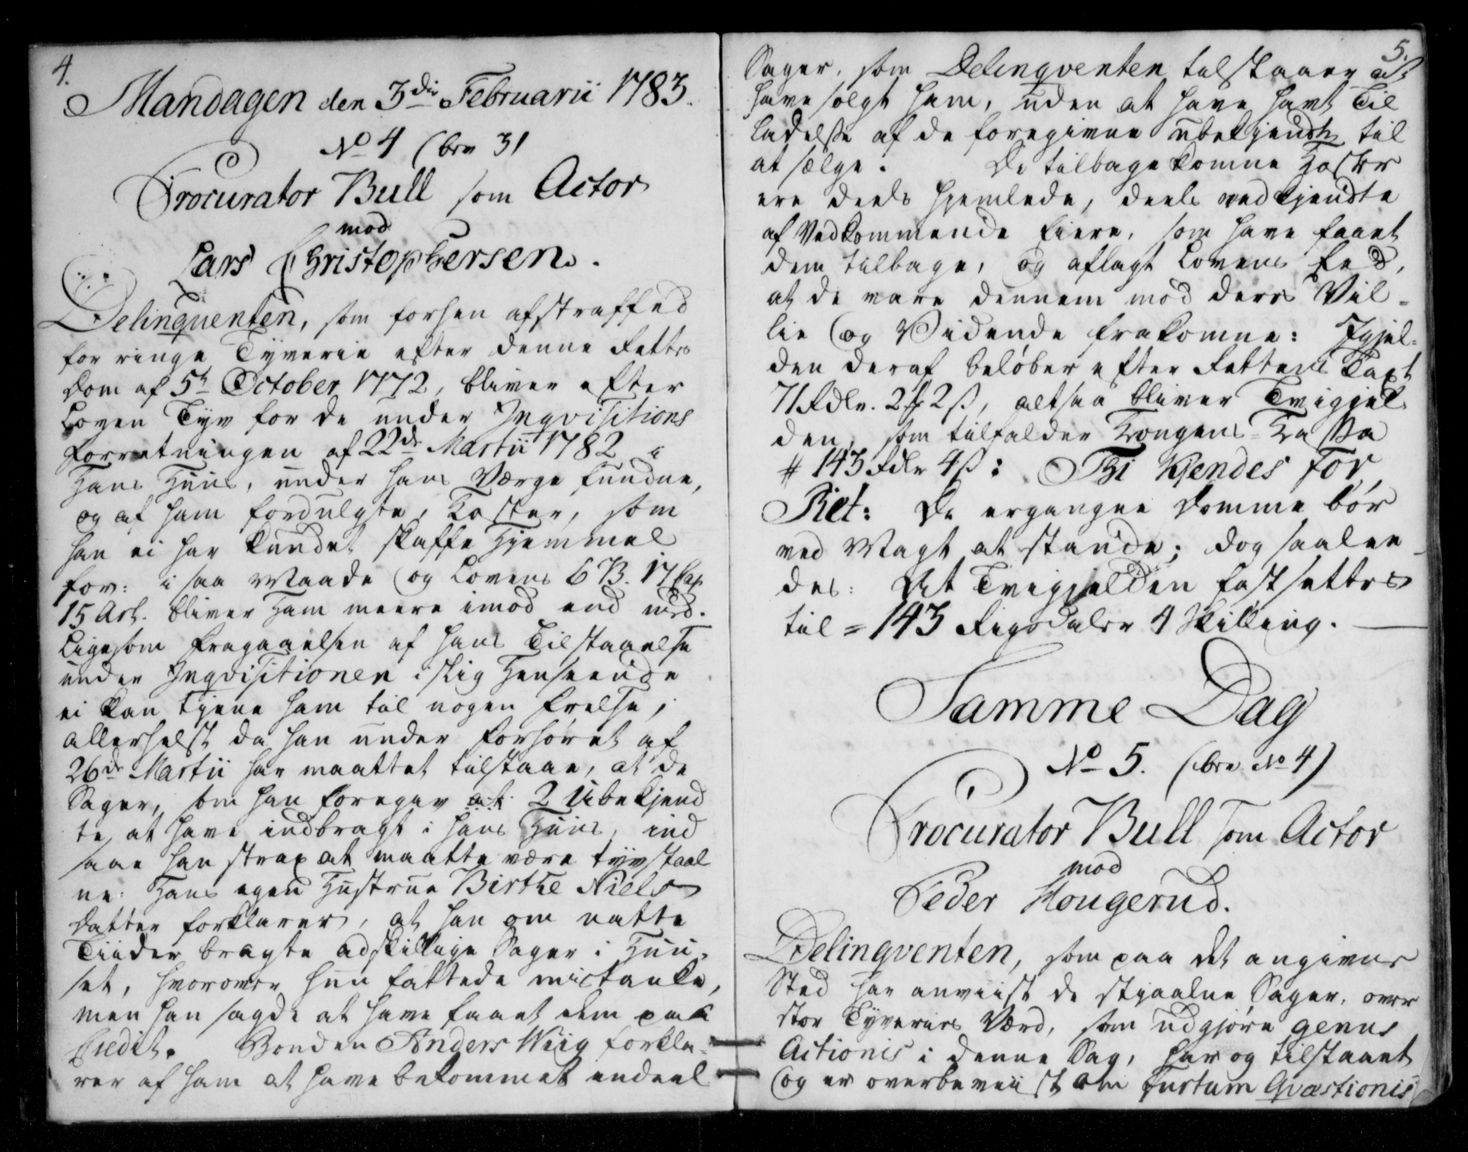 4.
Mandagen den 3die Februarii 1783.
No 4 (bre 3)
Procurator Bull som Actor
mod
Lars Christophersen.
Delinquenten, som forhen afstraffed
for ringe Tyverie efter denne Rettes
Dom af 5te October 1772, bliver efter
Loven Tyv for de under Inqvisitions
Forretningen af 22de Martii 1782 i
Hans Huus, under hans Værge fundne,
og af ham fordulgte, Koster, som
han ei har kundet skaffe Hjemmel
for: i saa Maade og Lovens 6 B. 17 Cap.
15 Art. bliver Ham meere imod end med.
Ligesom Fragaaelsen af hans Tilstaaelse
under Inqvisitionen i slig Henseende
ei kan tjene ham til nogen Frelse,
allerhelst da han under Forhøret af
26de Martii har maattet tilstaae, at de
Sager, som han foregav at 2 Ubekjend
te at have indbragt i hans Huus, ind
saae han strax at maatte være tyvstaal
ne: Hans egen Hustrue Birthe Niels
datter forklarer, at han om natte
Tiider bragte adskillige Sager i Huu-
set, hvorover hun fattede mistanke,
men han sagde at have faaet dem paa
Credit. Bonden Anders Wiig forkla-
rer af ham at have bekommet endeel
5.
Sager, som Delinqventen tilstaaer at
have solgt ham, uden at have havt Til
ladelse af de foregivne ubekjendte til
at sælge. De tilbagekomne Koster
ere deels hjemlede, deels vedkjendte
af Vedkommende Eiere, som have faaet
dem tilbage, og aflagt Lovens Eed,
at de vare dennem mod deres Vil-
lie og Vidende frakomne: Igjel-
den deraf beløber efter Rettens Taxt
71 Rdlr. 2 # 2 ß, altsaa bliver Tvigjel
den, som tilfalder Kongens Kassa
# 143 Rdlr 4 ß: Thi Kjendes for
Ret: De ergangne Domme bør
ved Magt at stande; dog saalee-
des: At Tvigjelden fastsettes
til = 143 Rigsdaler 4 Skilling.
Samme Dag
No 5. (bre No 4)
Procurator Bull som Actor
mod
Peder Hougerud.
Delinqventen, som paa det angivne
Sted har anviist de stjaalne Sager, over
stor Tyveries Værd, som udgjøre genus
Actionis i denne Sag, har og tilstaaet
og er overbeviist om Furtum Qvæstionis